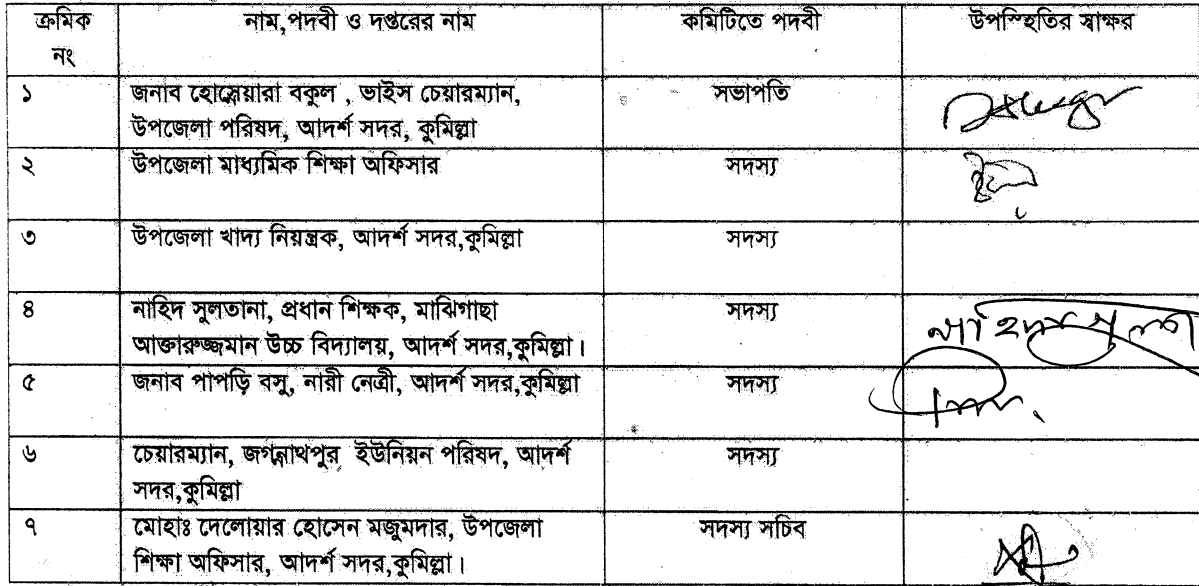 ক্রমিক নং নাম,পদবী ও দপ্তরের নাম কমিটিতে পদবী উপস্হিতির স্বাক্ষর
১ জনাব হোস্নেয়ারা বকুল , ভাইস চেয়ারম্যান, সভাপতি
উপজেলা পরিষদ, আদর্শ সদর, কুমিল্লা
২ উপজেলা মাধ্যমিক শিক্ষা অফিসার সদস্য
৩ উপজেলা খাদ্য নিয়ন্ত্রক, আদর্শ সদর,কুমিল্লা সদস্য
৪ নাহিদ সুলতানা, প্রধান শিক্ষক, মাঝিগাছা সদস্য
আক্তারুজ্জমান উচ্চ বিদ্যালয়, আদর্শ সদর,কুমিল্লা।
৫ জনাব পাপড়ি বসু, নারী নেত্রী, আদর্শ সদর,কুমিল্লা সদস্য
৬ চেয়ারম্যান, জগন্নাথপুর ইউনিয়ন পরিষদ, আদর্শ সদস্য
সদর,কুমিল্লা
৭ মোহাঃ দেলোয়ার হোসেন মজুমদার, উপজেলা সদস্য সচিব
শিক্ষা অফিসার, আদর্শ সদর,কুমিল্লা।